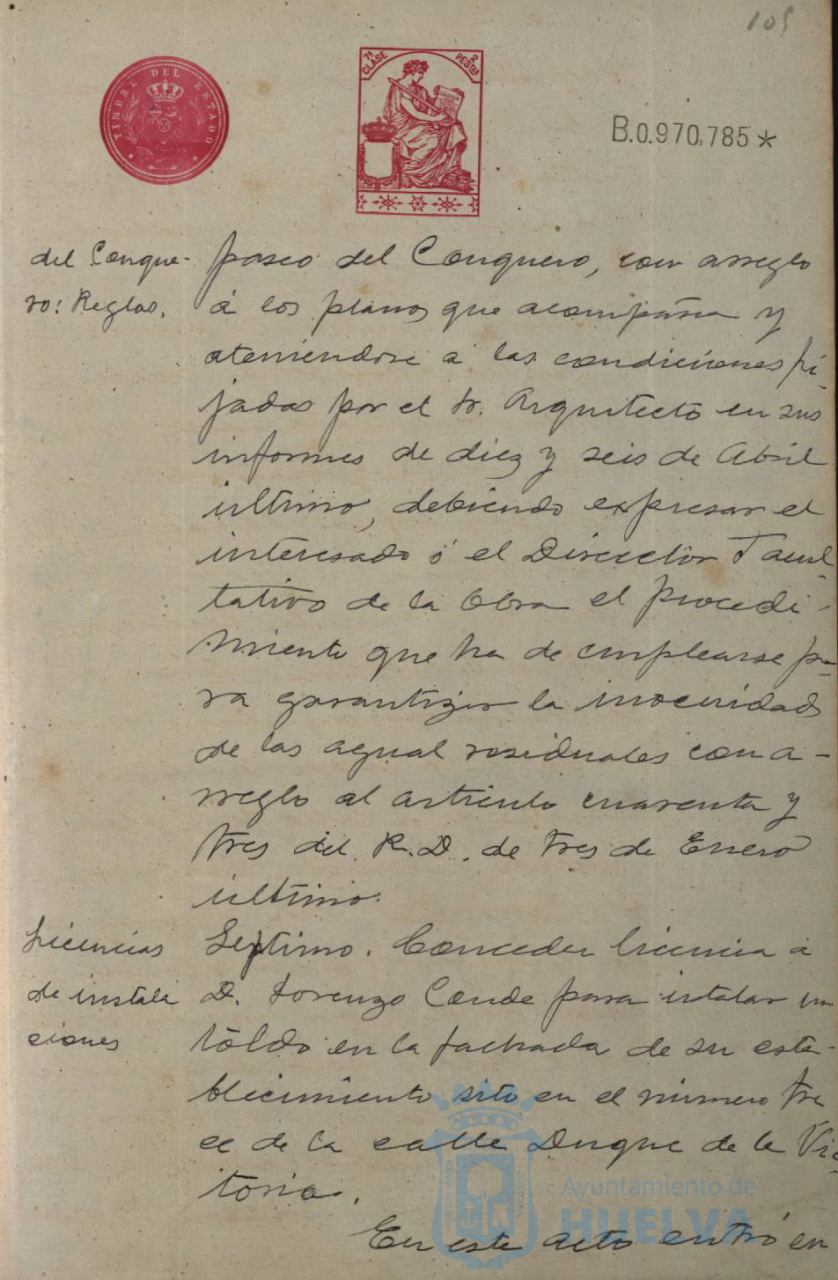 105
TIMBRE DEL ESTADO
7ª CLASE 2 PESTAS
B.0.970.785*
del Conque-
ro: Reglas.
paseo del Conquero, con arreglo
á los planos que acompaña y
ateniendose a las condiciones fi-
jadas por el Sr. Arquitecto en sus
informes de diez y seis de Abril
ultimo, debiendo expresar el
interesado ó el Director Facul-
tativo de la Obra el procedi-
miento que ha de emplearse pa-
ra garantizar la inocuidad
de las agual residuales con a-
rreglo al articulo cuarenta y
tres del R.D. de tres de Enero
ultimo.
Licencias
de instala
ciones
Septimo. Conceder licencia a
D. Lorenzo Conde para intalar un
toldo en la fachada de su esta-
blecimiento sito en el número tre
ce de la calle Duque de la Vic-
toria.
En este acto entró en
Ayuntamiento de
HUELVA